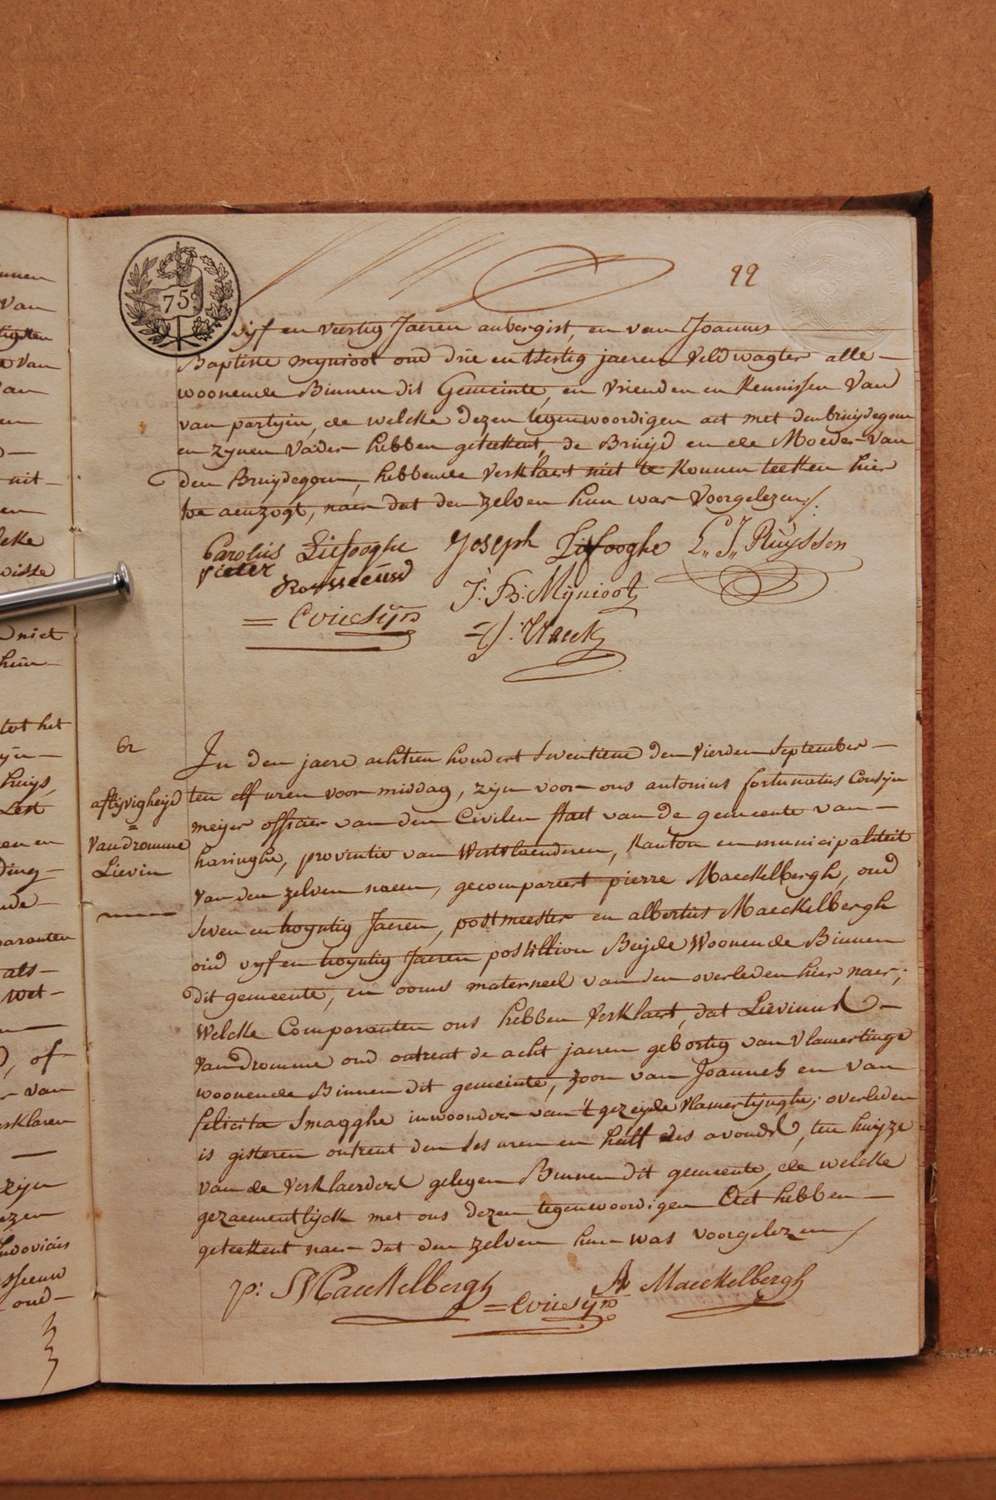 22
75c
vyf en veertig Jaeren aubergist, en van Joannes
Baptiste mynioot oud drie en tsestig jaeren veldwagter alle-
woonende Binnen dit Gemeinte, en vrienden en kennissen van
van partyen, de welcke dezen tegenwoordigen act met den bruydegom
en zynen vader hebben geteekent, de Bruyd en de Moeder van
den Bruydegom, hebbende verklaert niet te konnen teeken hier
toe aenzogt, naer dat den zelven hun was voorgelezen /.
Carolus Liefooghe Joseph Liefooghe L. J. Ruyssen
Pieter Rousseeuw J: B: Mynioot
= Cousyn J: Vlaeck
62
aflyvigheyd
=
vandromme
Lievin
In den jaere achtien hondert seventiene den vierden september-
ten elf uren voor middag, zyn voor ons antonius fortunatus Cousyn
meyer officier van den Civilen staet van de gemeente van-
haringhe, proventie van Westvlaenderen, kanton en municipaliteit
van den zelven naem, gecompareert pierre Maeckelbergh, oud
seven en twyntig Jaeren, postmeester en albertus Maeckelbergh
oud vyf en twyntig Jaeren postillion Beyde Woonende Binnen
dit gemeente, en ooms materneel van den overleden hier naer;
Welcke Comparanten ons hebben verklaert, dat Lievinus
vandromme oud ontrent de acht jaeren gebortig van vlamertinge
woonende Binnen dit gemeinte, zoon van Joannes en van
felicita Smagghe inwoonders van 't gezeyde vlamertynghe; overleden
is gisteren ontrent den ses uren en half des avonds, ten huyze
van de verklaerders gelegen Binnen dit gemeente, de welcke
gezaementlyck met ons dezen tegenwoordigen Act hebben-
geteekent naer dat den zelven hun was voorgelezen /
p: Maeckelbergh = Cousyn A Maeckelbergh